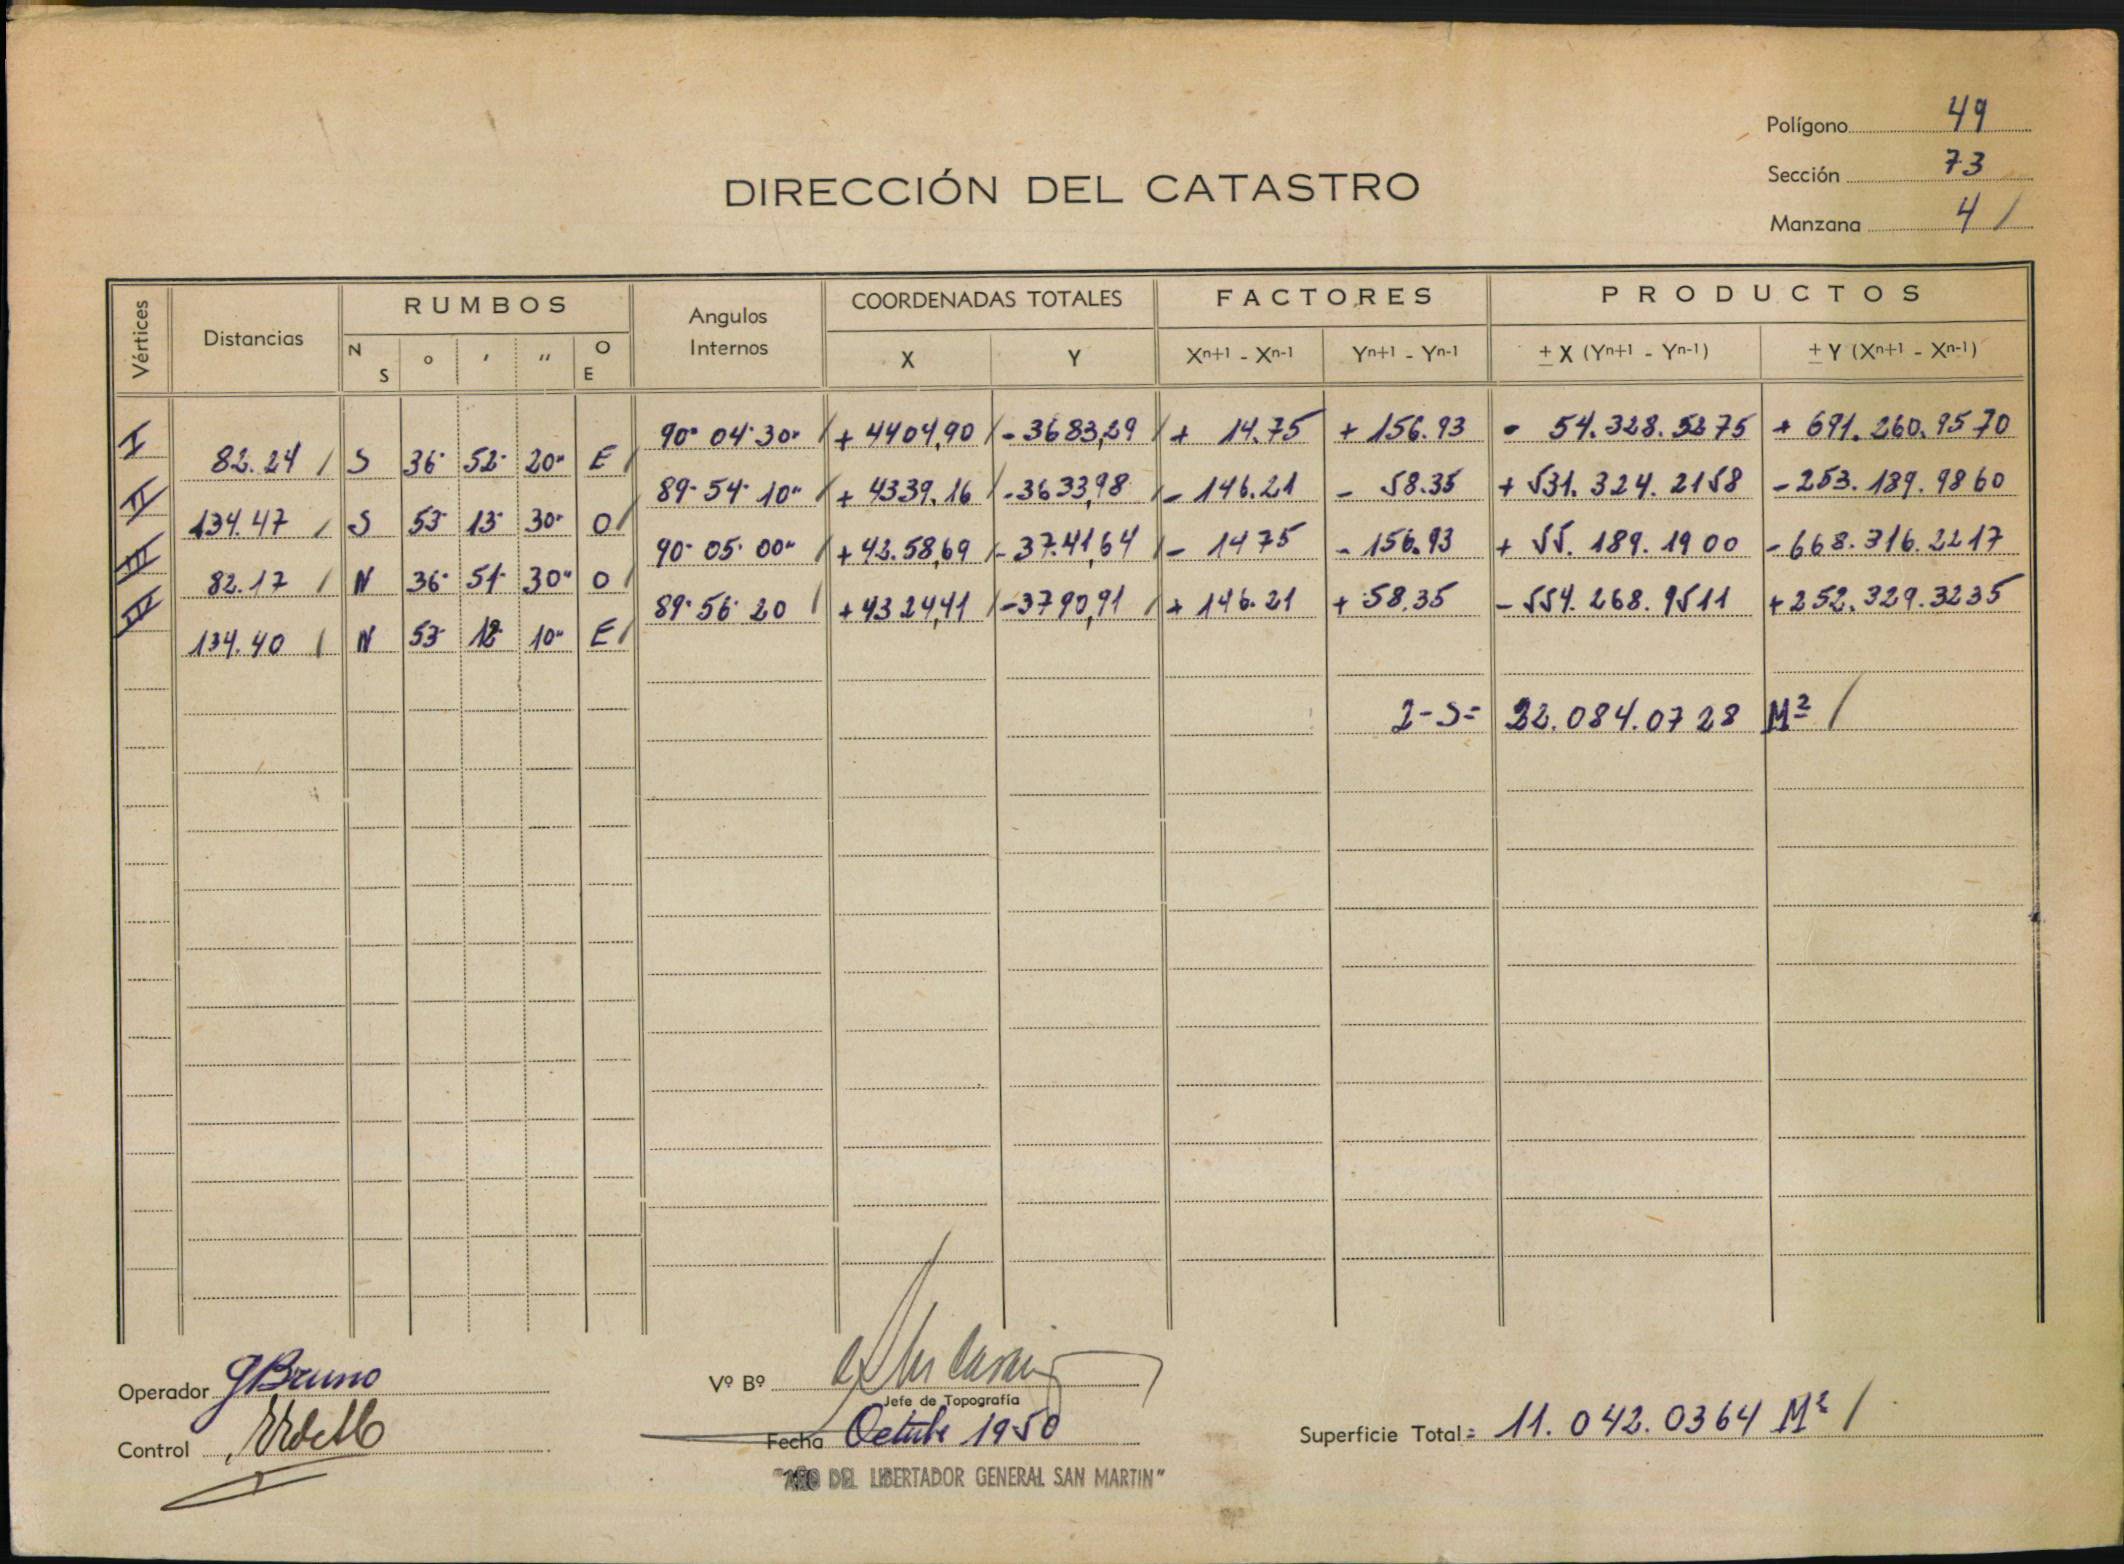 Polígono 49
Sección 73
DIRECCIÓN DEL CATASTRO
Manzana 4 /
Vértices Distancias RUMBOS Angulos Internos COORDENADAS TOTALES FACTORES PRODUCTOS
N S o ′ ″ O E X Y Xn+1 - Xn-1 Yn+1 - Yn-1 ± X (Yn+1 - Yn-1) ± Y (Xn+1 - Xn-1)
I 90° 04' 30" / + 4404,90 / - 3683,29 / + 14.75 + 156.93 - 54.328.5275 + 691.260.9570
82.24 / S 36° 52' 20" E /
II 89° 54' 10" / + 4339.16 / - 3633,98 / - 146.21 - 58.35 + 531.324.2158 - 253.189.9860
134.47 / S 53° 13' 30" O /
III 90° 05' 00" / + 42.58,69 / - 37.41,64 / - 1475 - 156.93 + 55.189.1900 - 668.316.2217
82.17 / N 36° 51' 30" O /
IV 89° 56' 20 / + 4324,41 / - 3790,91 / + 146.21 + 58.35 - 554.268.9511 + 252.329.3235
134.40 / N 53° 12' 10" E /
2-S= 22.084.0728 M² /
Operador GBruno
Vº Bº
Jefe de Topografía
Control
Fecha Octubre 1950
Superficie Total = 11.042.0364 M² /
"AÑO DEL LIBERTADOR GENERAL SAN MARTIN"